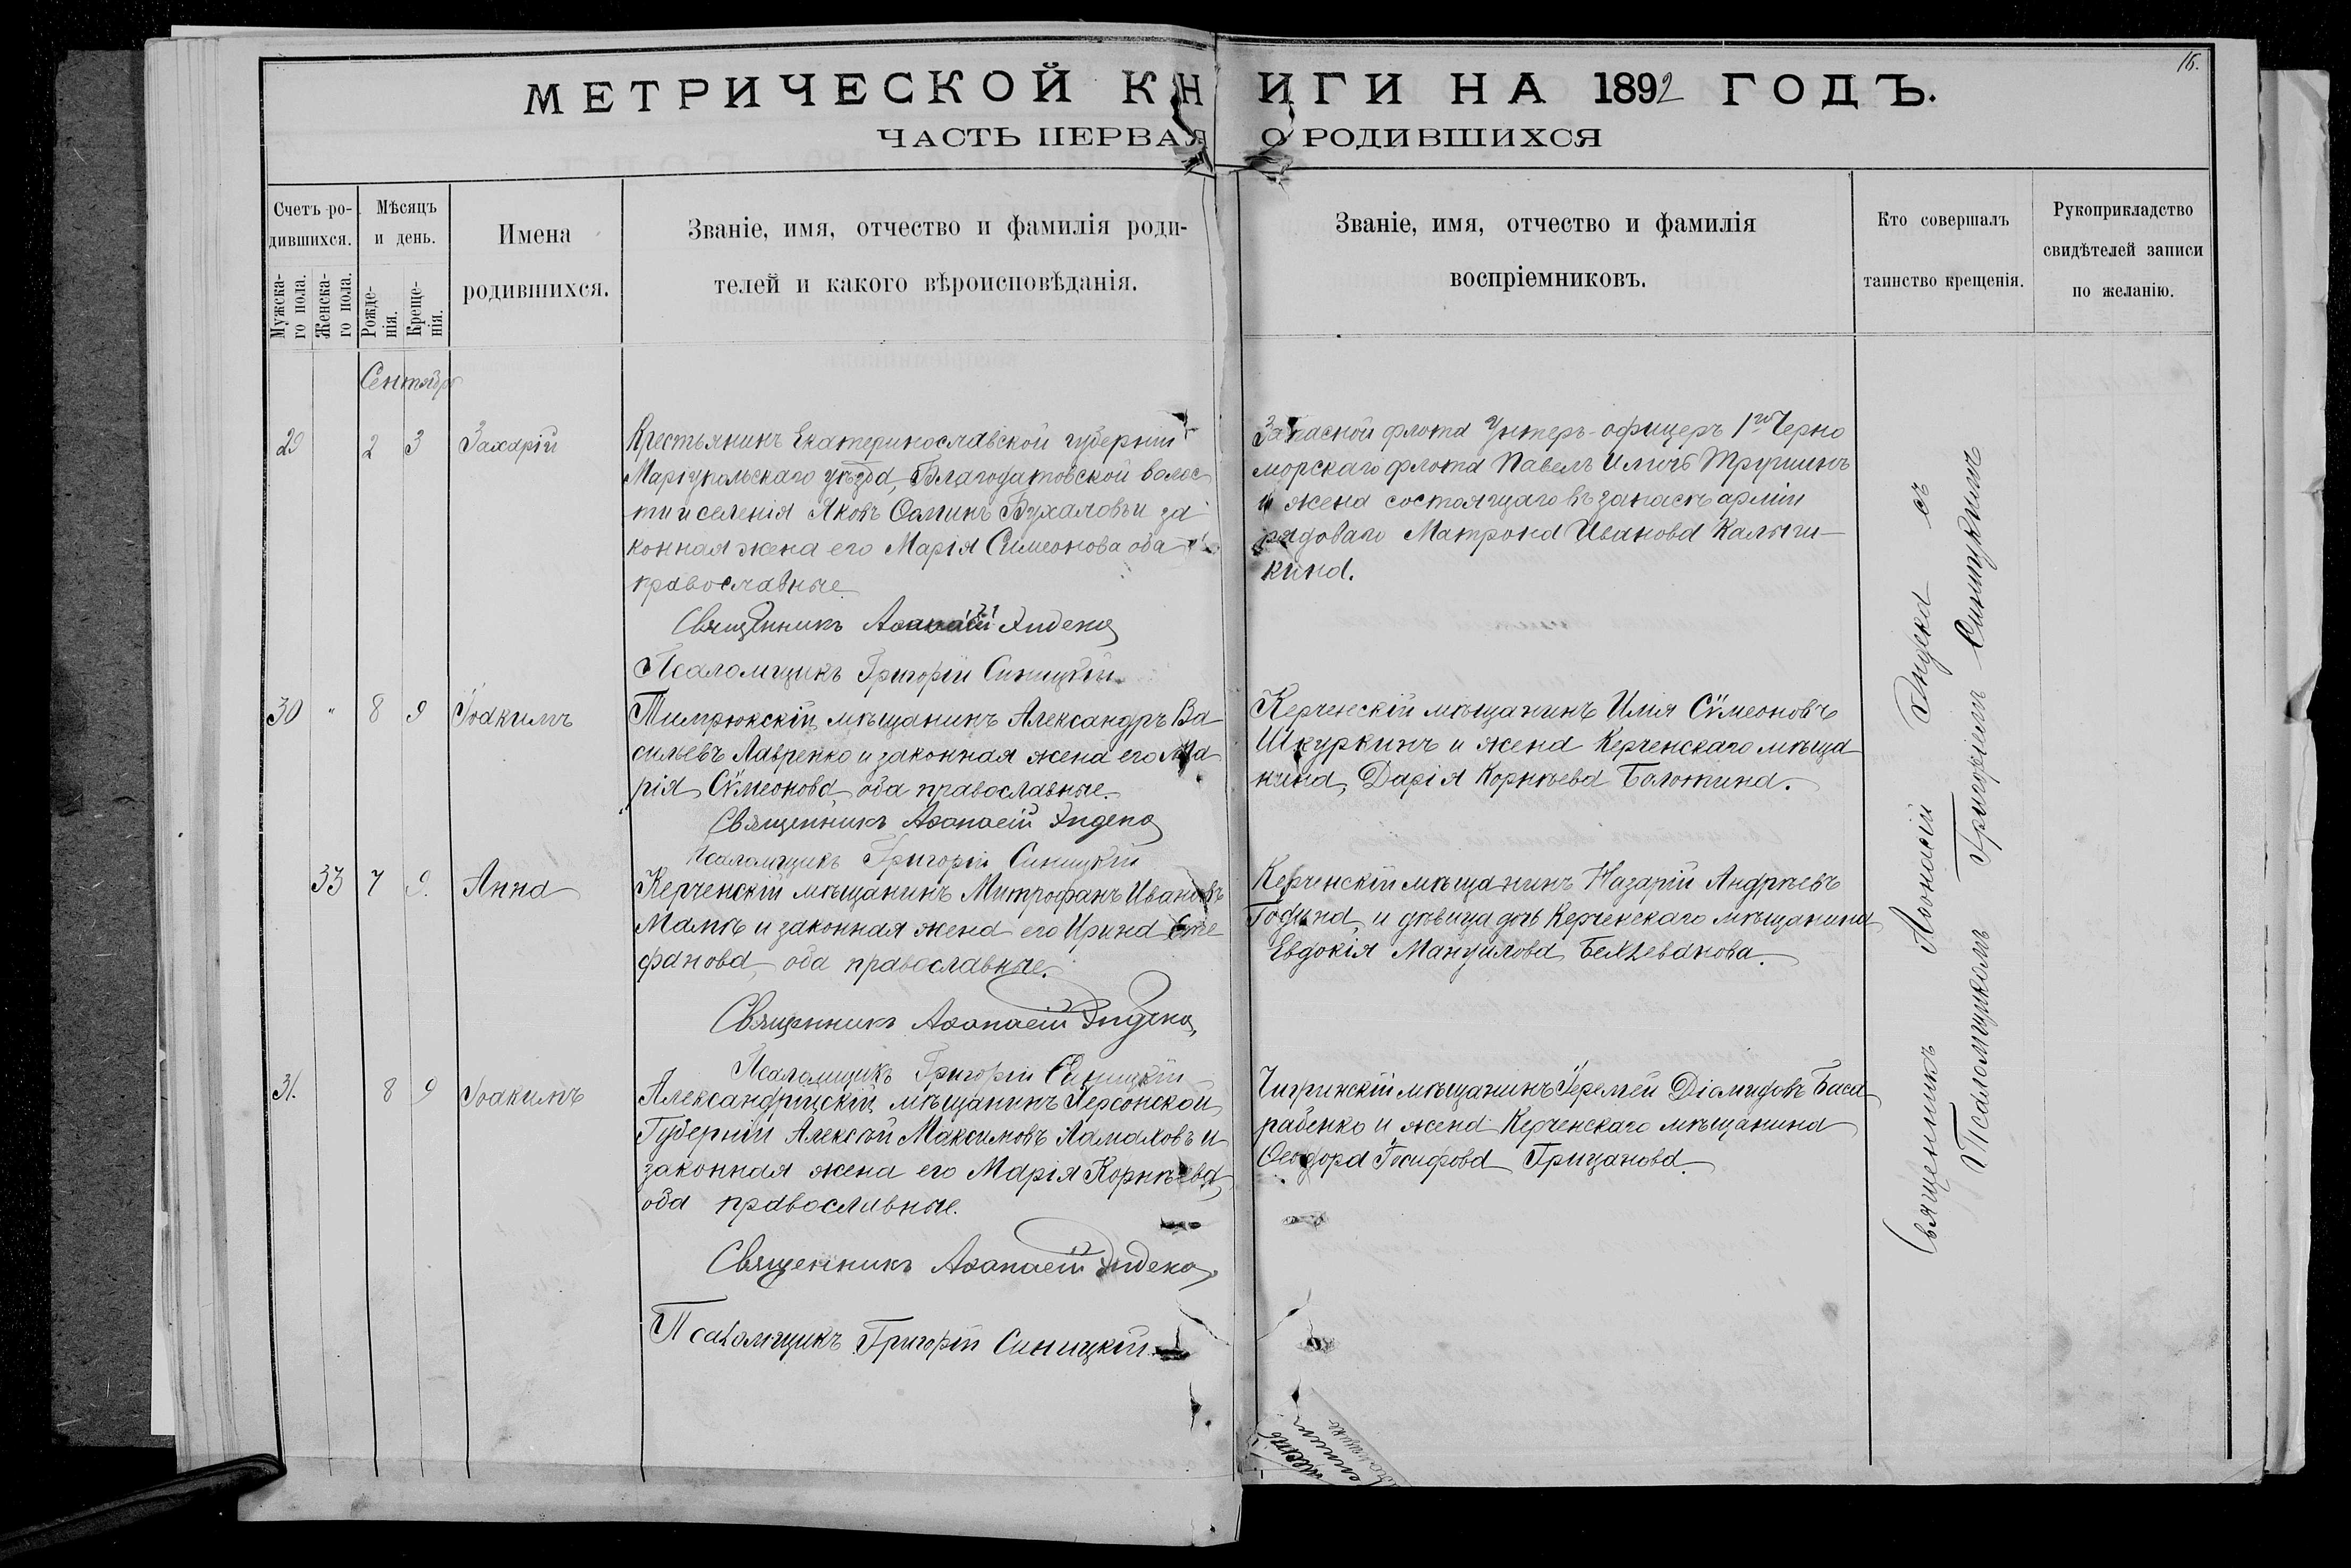 16.
МЕТРИЧЕСКОЙ КНИГИ НА 1892 ГОДЪ.
ЧАСТЬ ПЕРВАЯ О РОДИВШИХСЯ
Счетъ родившихся.
Мужска-
го пола.
Женска-
го пола.
Мѣсяцъ
и день.
Рожде-
нія.
Креще-
нія.
Имена
родившихся.
Званіе, имя, отчество и фамилія роди-
телей и какого вѣроисповѣданія.
Званіе, имя, отчество и фамилія
воспріемниковъ.
Кто совершалъ
таинство крещенія.
Рукоприкладство
свидѣтелей записи
по желанію.
Сентябрь
29 2 3 Захарій
Крестьянинъ Екатеринославской губерніи
Маріупольскаго уѣзда, Благодатовской волос
ти и селенія Яковъ Ѳоминъ Бухаловъ и за
конная жена его Марія Симеонова оба
православные
Священникъ Аѳанасій Индека
Псаломщикъ Григорій Синицкій
Запасной флота Унтеръ-офицеръ 1го Черно
морскаго флота Павелъ Ильичъ Трушинъ
и жена состоящаго въ запасѣ арміи
рядоваго Матрона Иванова Калыги-
кина.
30 " 8 9 Іоакимъ
Тимрюкскій мѣщанинъ Александръ Ва
сильевъ Лавренко и законная жена его Ма
рія Сѵмеонова, оба православные.
Священникъ Аѳанасій Индека
Псаломщикъ Григорій Синицкій
Керченскій мѣщанинъ Илія Сѵмеоновъ
Шкуркинъ и жена Керченскаго мѣща
нина, Дарія Корнѣева Болотина.
33 7 9. Анна
Керченскій мѣщанинъ Митрофанъ Ивановъ
и законная жена его Ирина Сте
фанова, оба православные.
Священникъ Аѳанасій Индека
Псаломщикъ Григорій Синицкій
Керченскій мѣщанинъ Назарій Андреевъ
Година, и дѣвица дочь Керченскаго мѣщанина
Евдокія Мануилова
31. 8 9 Іоакимъ
Александрійскій мѣщанинъ Херсонской
Губерніи Алексѣй Максимовъ Ламаховъ и
законная жена его Марія Корнѣева,
оба православные.
Священникъ Аѳанасій Индека
Псаломщикъ Григорій Синицкій
Чигринскій мѣщанинъ Іеремѣй Діомидовъ Баса
рабенко и жена Керченскаго мѣщанина
Ѳеодора Іосифова Грицанова.
Священникъ Аѳонасій Индека съ
Псаломщикомъ Григоріемъ Синицкимъ